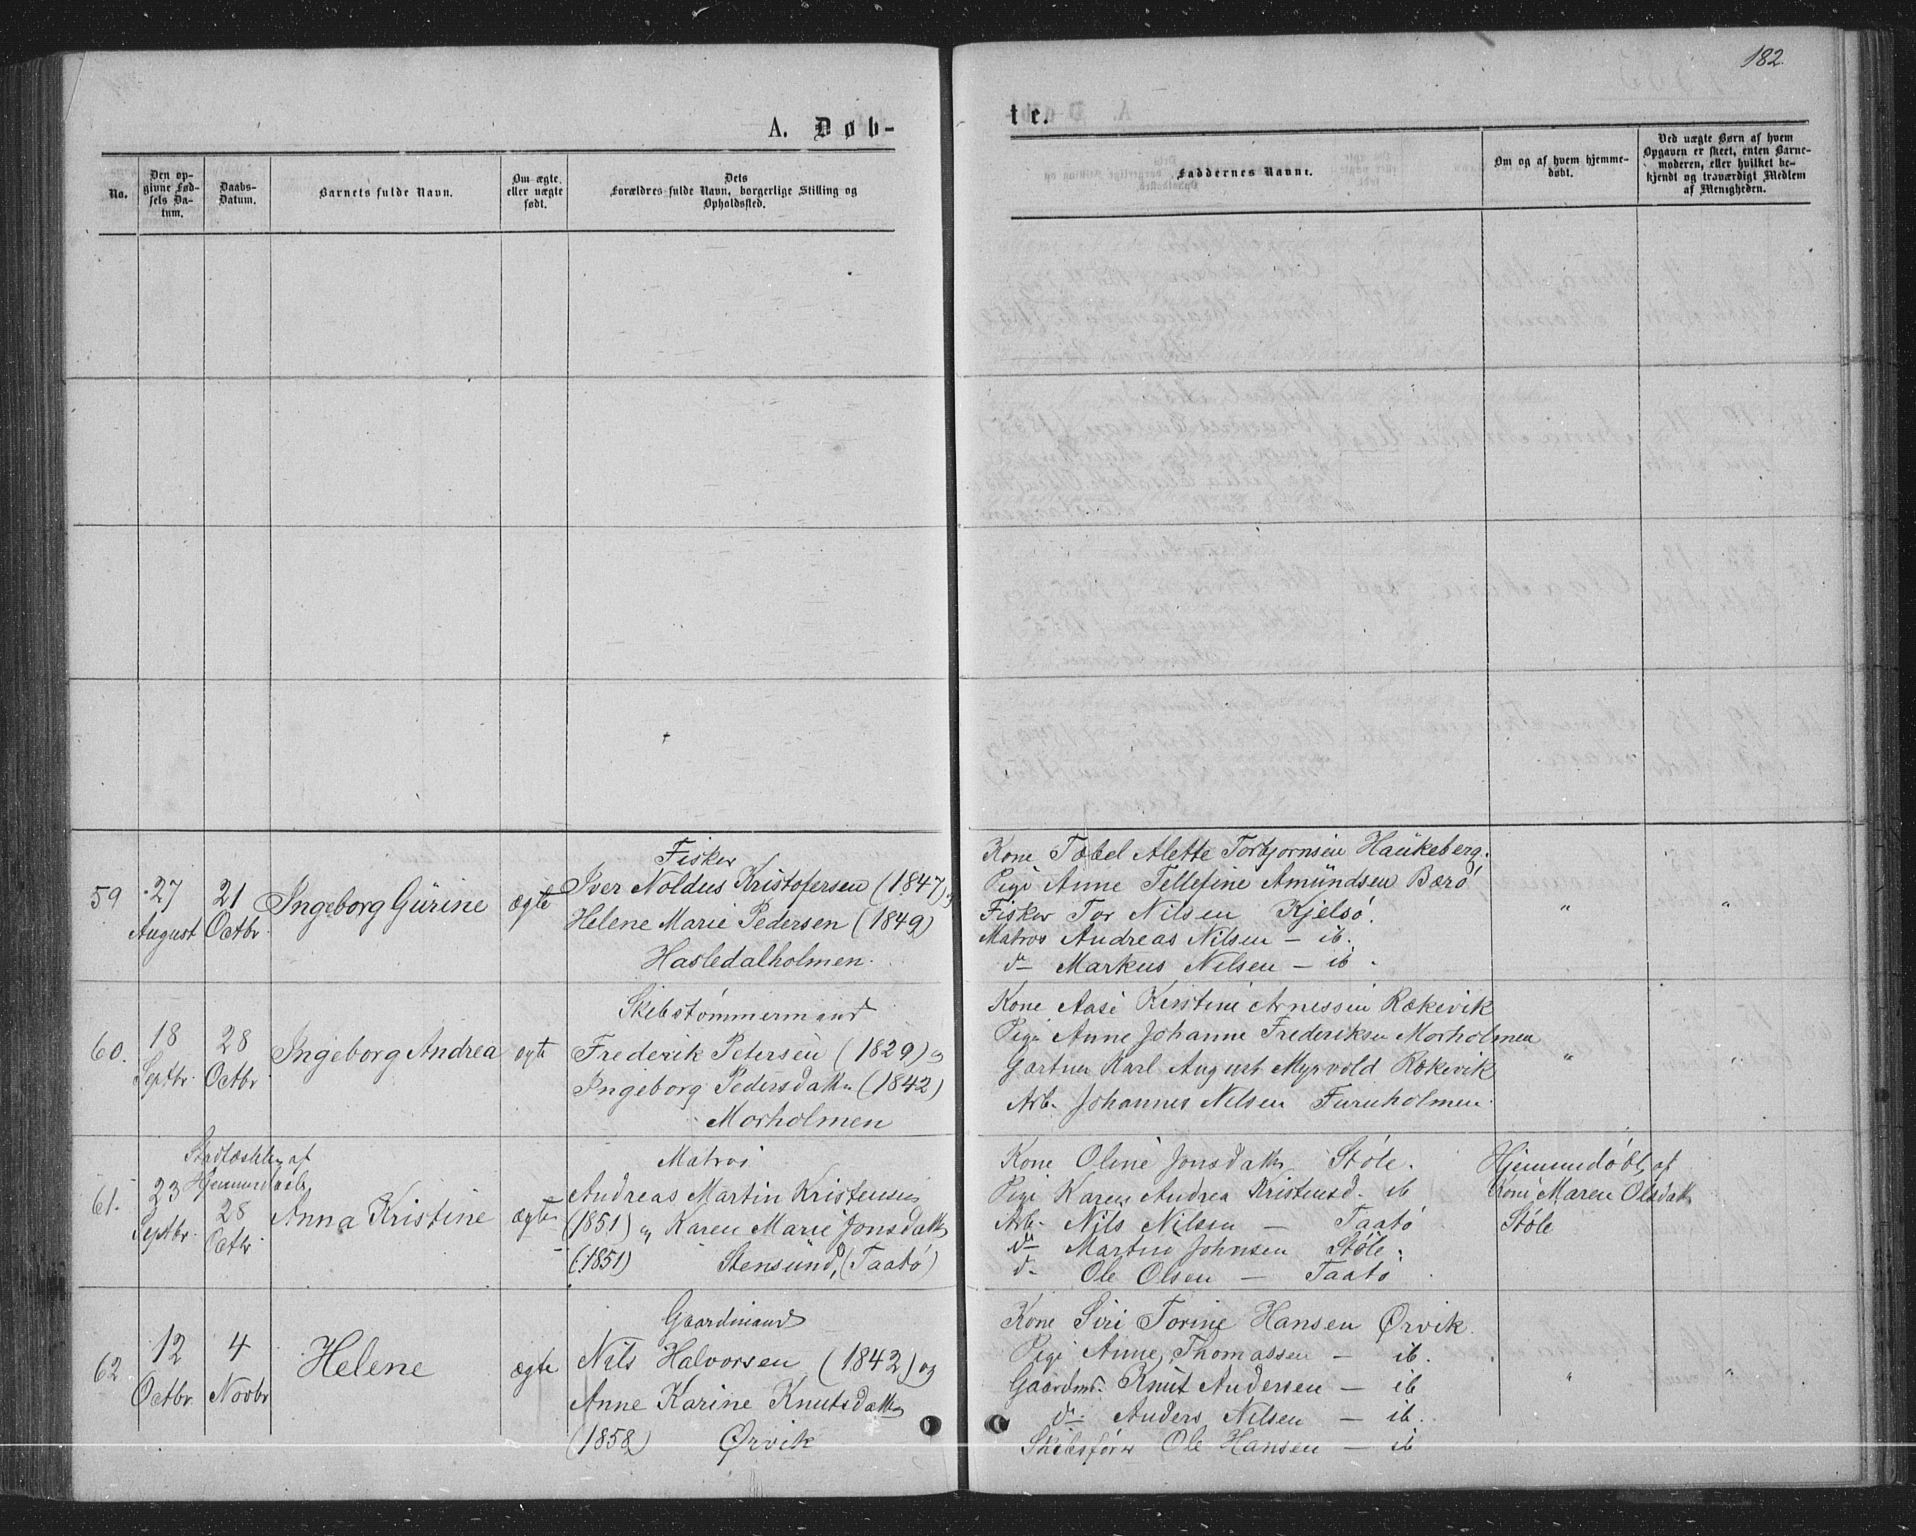 182.
A. Døb-
te.
No.
Den op-
givne Fød-
sels Da-
tum.
Daabs-
Datum.
Barnets fulde Navn.
Om ægte,
eller uægte
født.
Dets
Forældres fulde Navn, borgerlige Stilling og
Opholdssted.
Faddernes Navne.
Om og af hvem hjemme-
døbt.
Ved uægte Børn af hvem
Opgaven er skeet, enten Barne-
moderen, eller hvilket be-
kjendt og troværdigt Medlem
af Menigheden.
59
27
August
21
Octbr.
Ingeborg Gürine
ægte
Fisker
Iver Noldus Kristofersen (1847) og
Helene Marie Pedersen (1849)
Hasledalholmen.
Kone Tobel Alette Torbjornsen Haukeberg.
Pige Anne Tellefine Amündsen Bærö
Fisker Tor Nilsen Kjelsö.
Matros Andreas Nilsen — ib.
d— Markus Nilsen — ib.
"
"
60.
18
Septbr.
28
Octbr
Ingeborg Andrea
ægte
Skibstømmermand
Frederik Petersen (1829) og
Ingeborg Pedersdatter (1842)
Morholmen
Kone Aase Kirstine Arnessen Rækevik
Pige Anne Johanne Frederiksen Morholmen
Gartner Karl August Myrvold Rækevik
Arb. Johannes Nilsen Furuholmen.
"
"
61.
af
Hjemmedaab,
23
Septbr.
28
Octbr.
Anna Kristine
ægte
Matros
Andreas Martin Kristensen
(1851) og Karen Marie Jonsdatter
(1851) Stensünd, (Taatö)
Kone Oline Jonsdatter Støle.
Pige Karen Andrea Kristensd. ib
Arb. Nils Nilsen — Taatö
d— Martin Johnsen Støle.
d. Ole Olsen — Taatö.
Hjemmedöbt af
Kone Maren Olsdatter
Støle
62
12
Octbr.
4
Novbr
Helene
ægte
Gaardmand
Nils Halvorsen (1842) og
Anne Karine Knutsdatter
(1858) Ørvik
Kone Siri Torine Hansen Ørvik.
Pige Anne Thomassen — ib.
Gaardmd. Knüt Andersen — ib
d— Anders Nilsen — ib.
Skibsfører Ole Hansen — ib
"
"